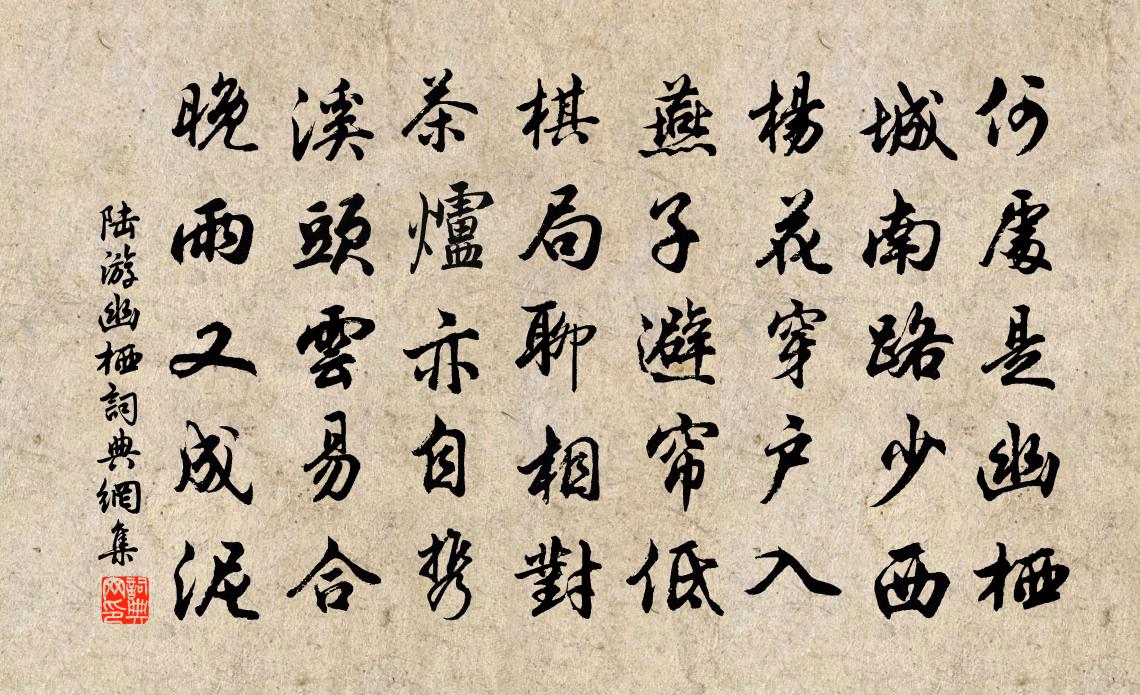 何處是幽栖
城南路少西
楊花穿户入
燕子避帘低
棋局聊相對
茶爐亦自携
溪頭雲易合
晚雨又成泥
陆游幽栖詞典網集
詞典网印